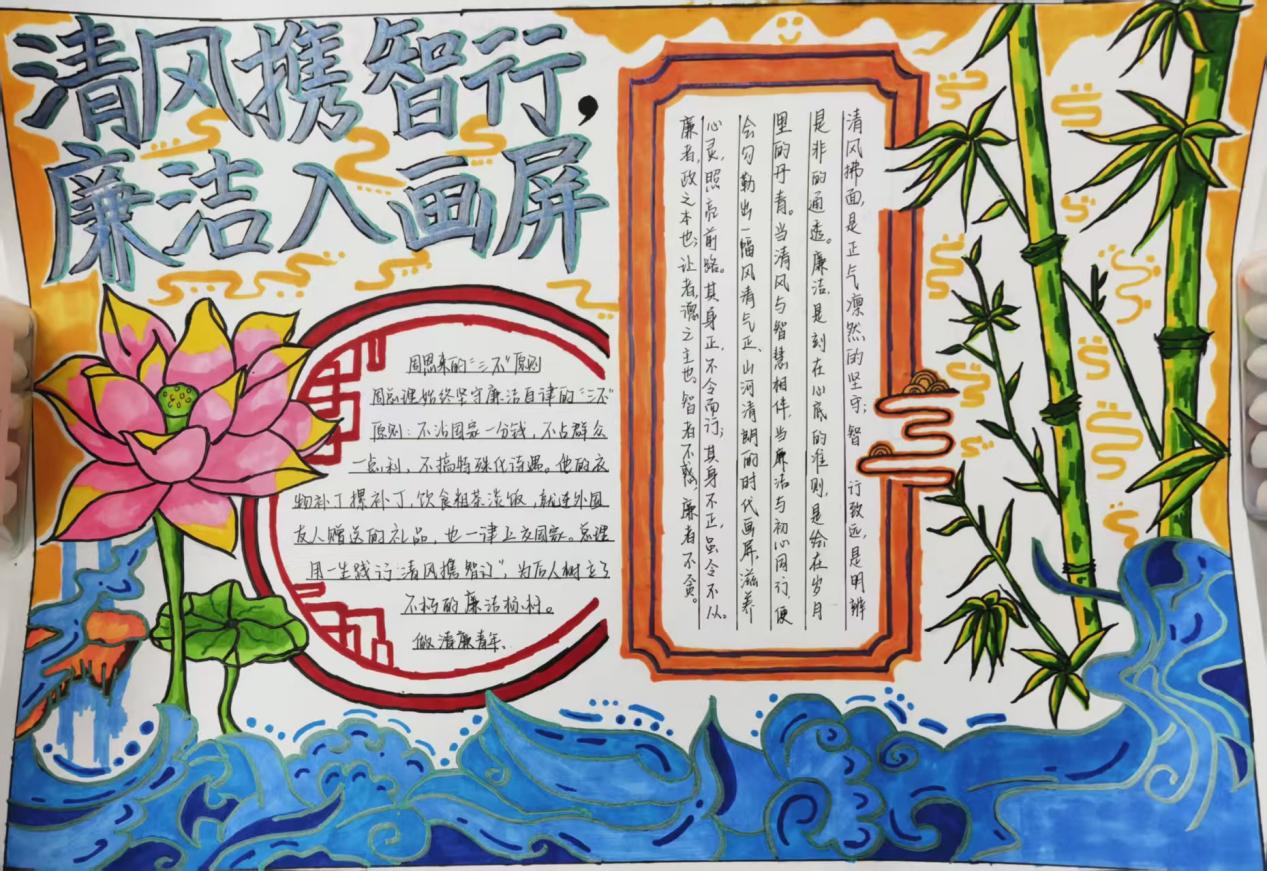 清风携智行，
廉洁入画屏
周恩来的“三不”原则
周总理始终坚守廉洁自律的“三不”
原则：不沾国家一分钱，不占群众
一点利，不搞特殊化待遇。他的衣
物补丁摞补丁，饮食粗茶淡饭，就连外国
友人赠送的礼品，也一律上交国家。总理
用一生践行“清风携智行”，为后人树立了
不朽的廉洁榜样。
做清廉青年。
清风拂面，是正气凛然的坚守；智行致远，是明辨
是非的通透。廉洁，是刻在心底的准则，是绘在岁月
里的丹青。当清风与智慧相伴，当廉洁与初心同行，便
会勾勒出一幅风清气正、山河清朗的时代画屏，滋养
心灵，照亮前路。其身正，不令而行；其身不正，虽令不从。
廉者，政之本也；让者，德之主也。智者不惑，廉者不贪。